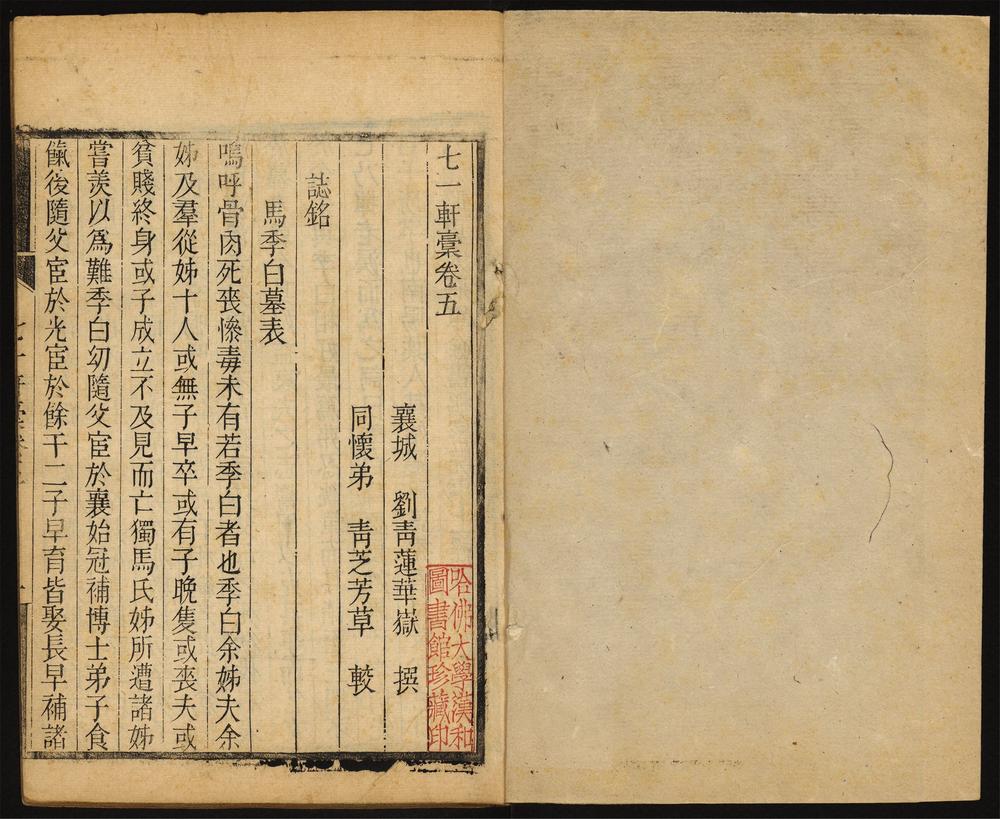 七一軒稾卷五
襄城　劉靑蓮華嶽　撰
同懷弟　靑芝芳草　較
誌銘
馬季白墓表
嗚呼骨肉死喪慘毒未有若季白者也季白余姊夫余
姊及羣從姊十人或無子早卒或有子晚隻或喪夫或
貧賤終身或子成立不及見而亡獨馬氏姊所遭諸姊
嘗羡以爲難季白幼隨父宦於襄始冠補博士弟子食
餼後隨父宦於光宦於餘干二子早育皆娶長早補諸
哈佛大學漢和
圖書館珍藏印